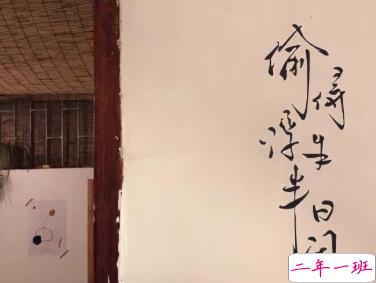 偷得
浮生
半日闲
二年一班